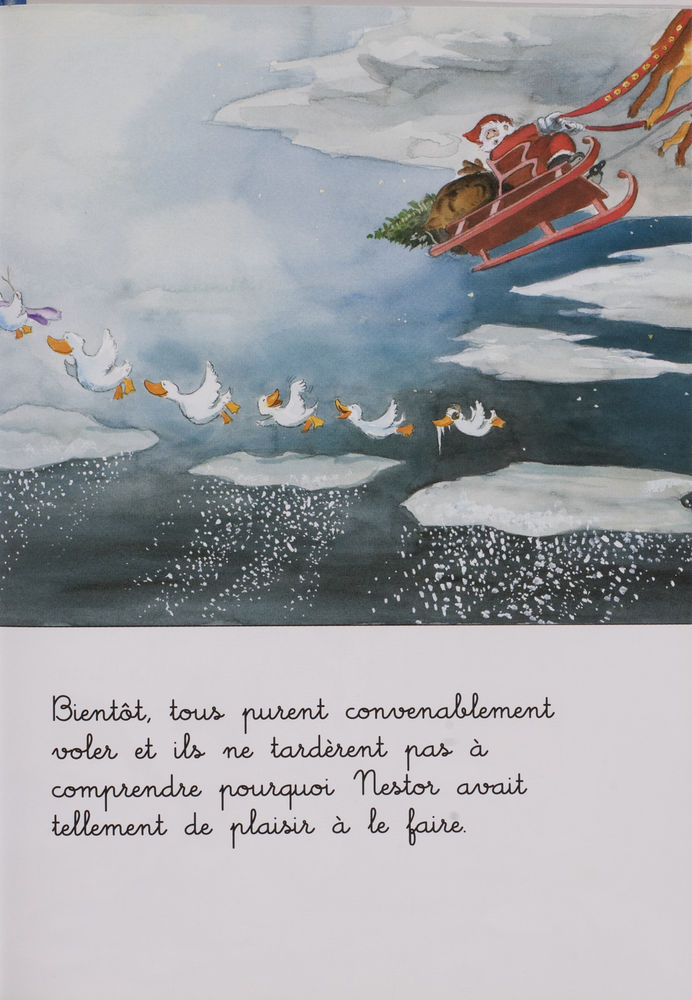 Bientôt, tous purent convenablement
voler et ils ne tardèrent pas à
comprendre pourquoi Nestor avait
tellement de plaisir à le faire.